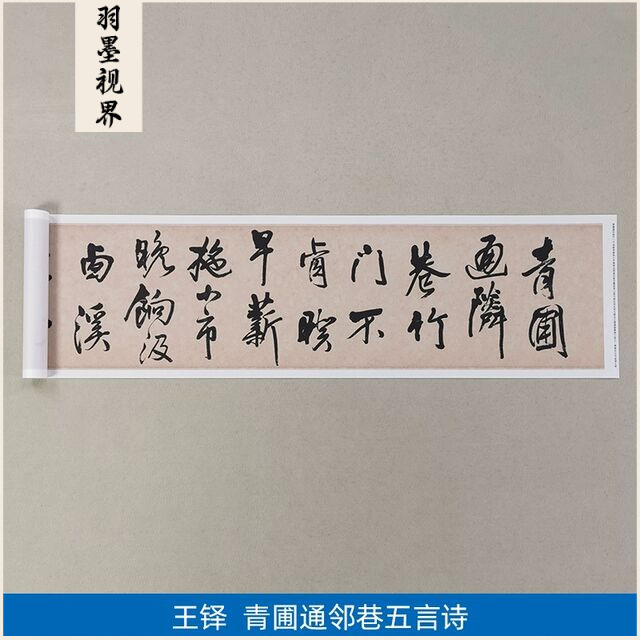 羽墨视界
青圃
通隣
巷竹
门不
肯暌
早薪
施小市
晚餉汲
溪
王铎 青圃通邻巷五言诗